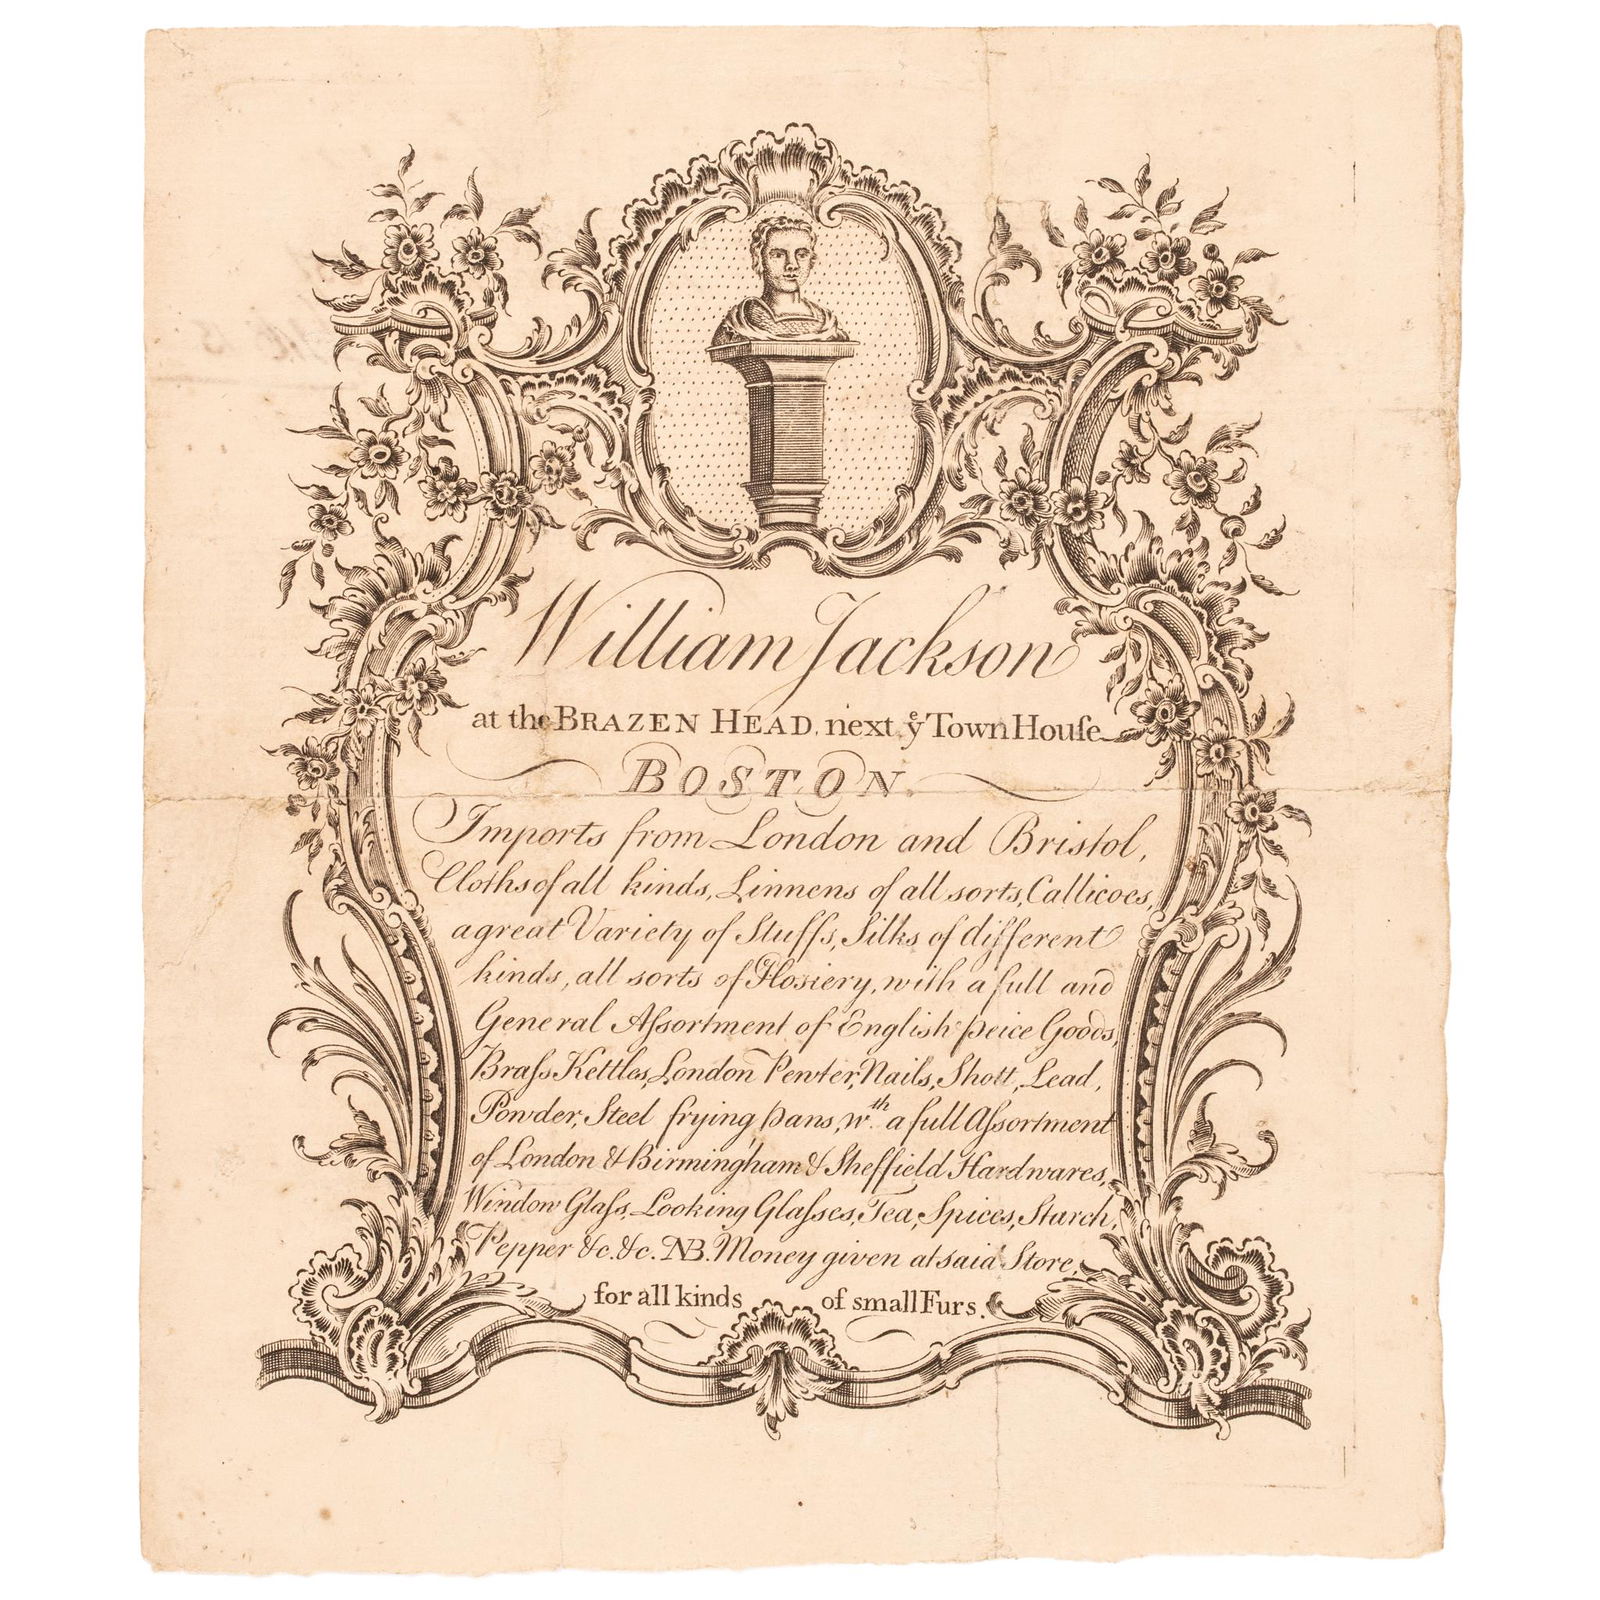 William Jackson
at the BRAZEN HEAD, next yͤ Town Houſe
BOSTON.
Imports from London and Bristol,
Cloths of all kinds, Linnens of all sorts, Callicoes,
a great Variety of Stuffs, Silks of different
kinds, all sorts of Hosiery, with a full and
General Aſsortment of English peice Goods,
Braſs Kettles, London Pewter, Nails, Shott, Lead,
Powder, Steel frying pans, wth. a full Aſsortment
of London & Birmingham & Sheffield Hardwares,
Window Glaſs, Looking Glaſses, Tea, Spices, Starch,
Pepper &c. &c. NB. Money given at said Store,
for all kinds of small Furs.